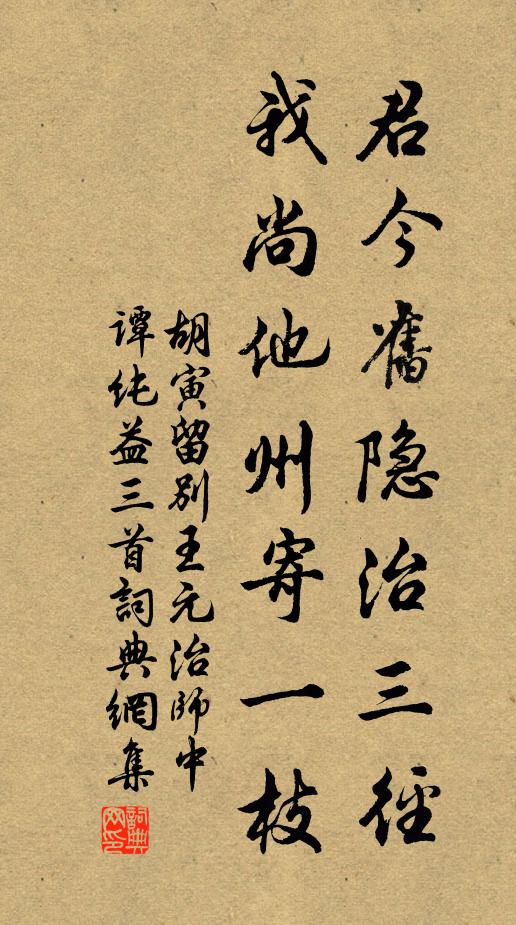 君今舊隐治三径
我尚他州寄一枝
胡寅留别王元治師中
譚纯益三首詞典網集
詞典网印